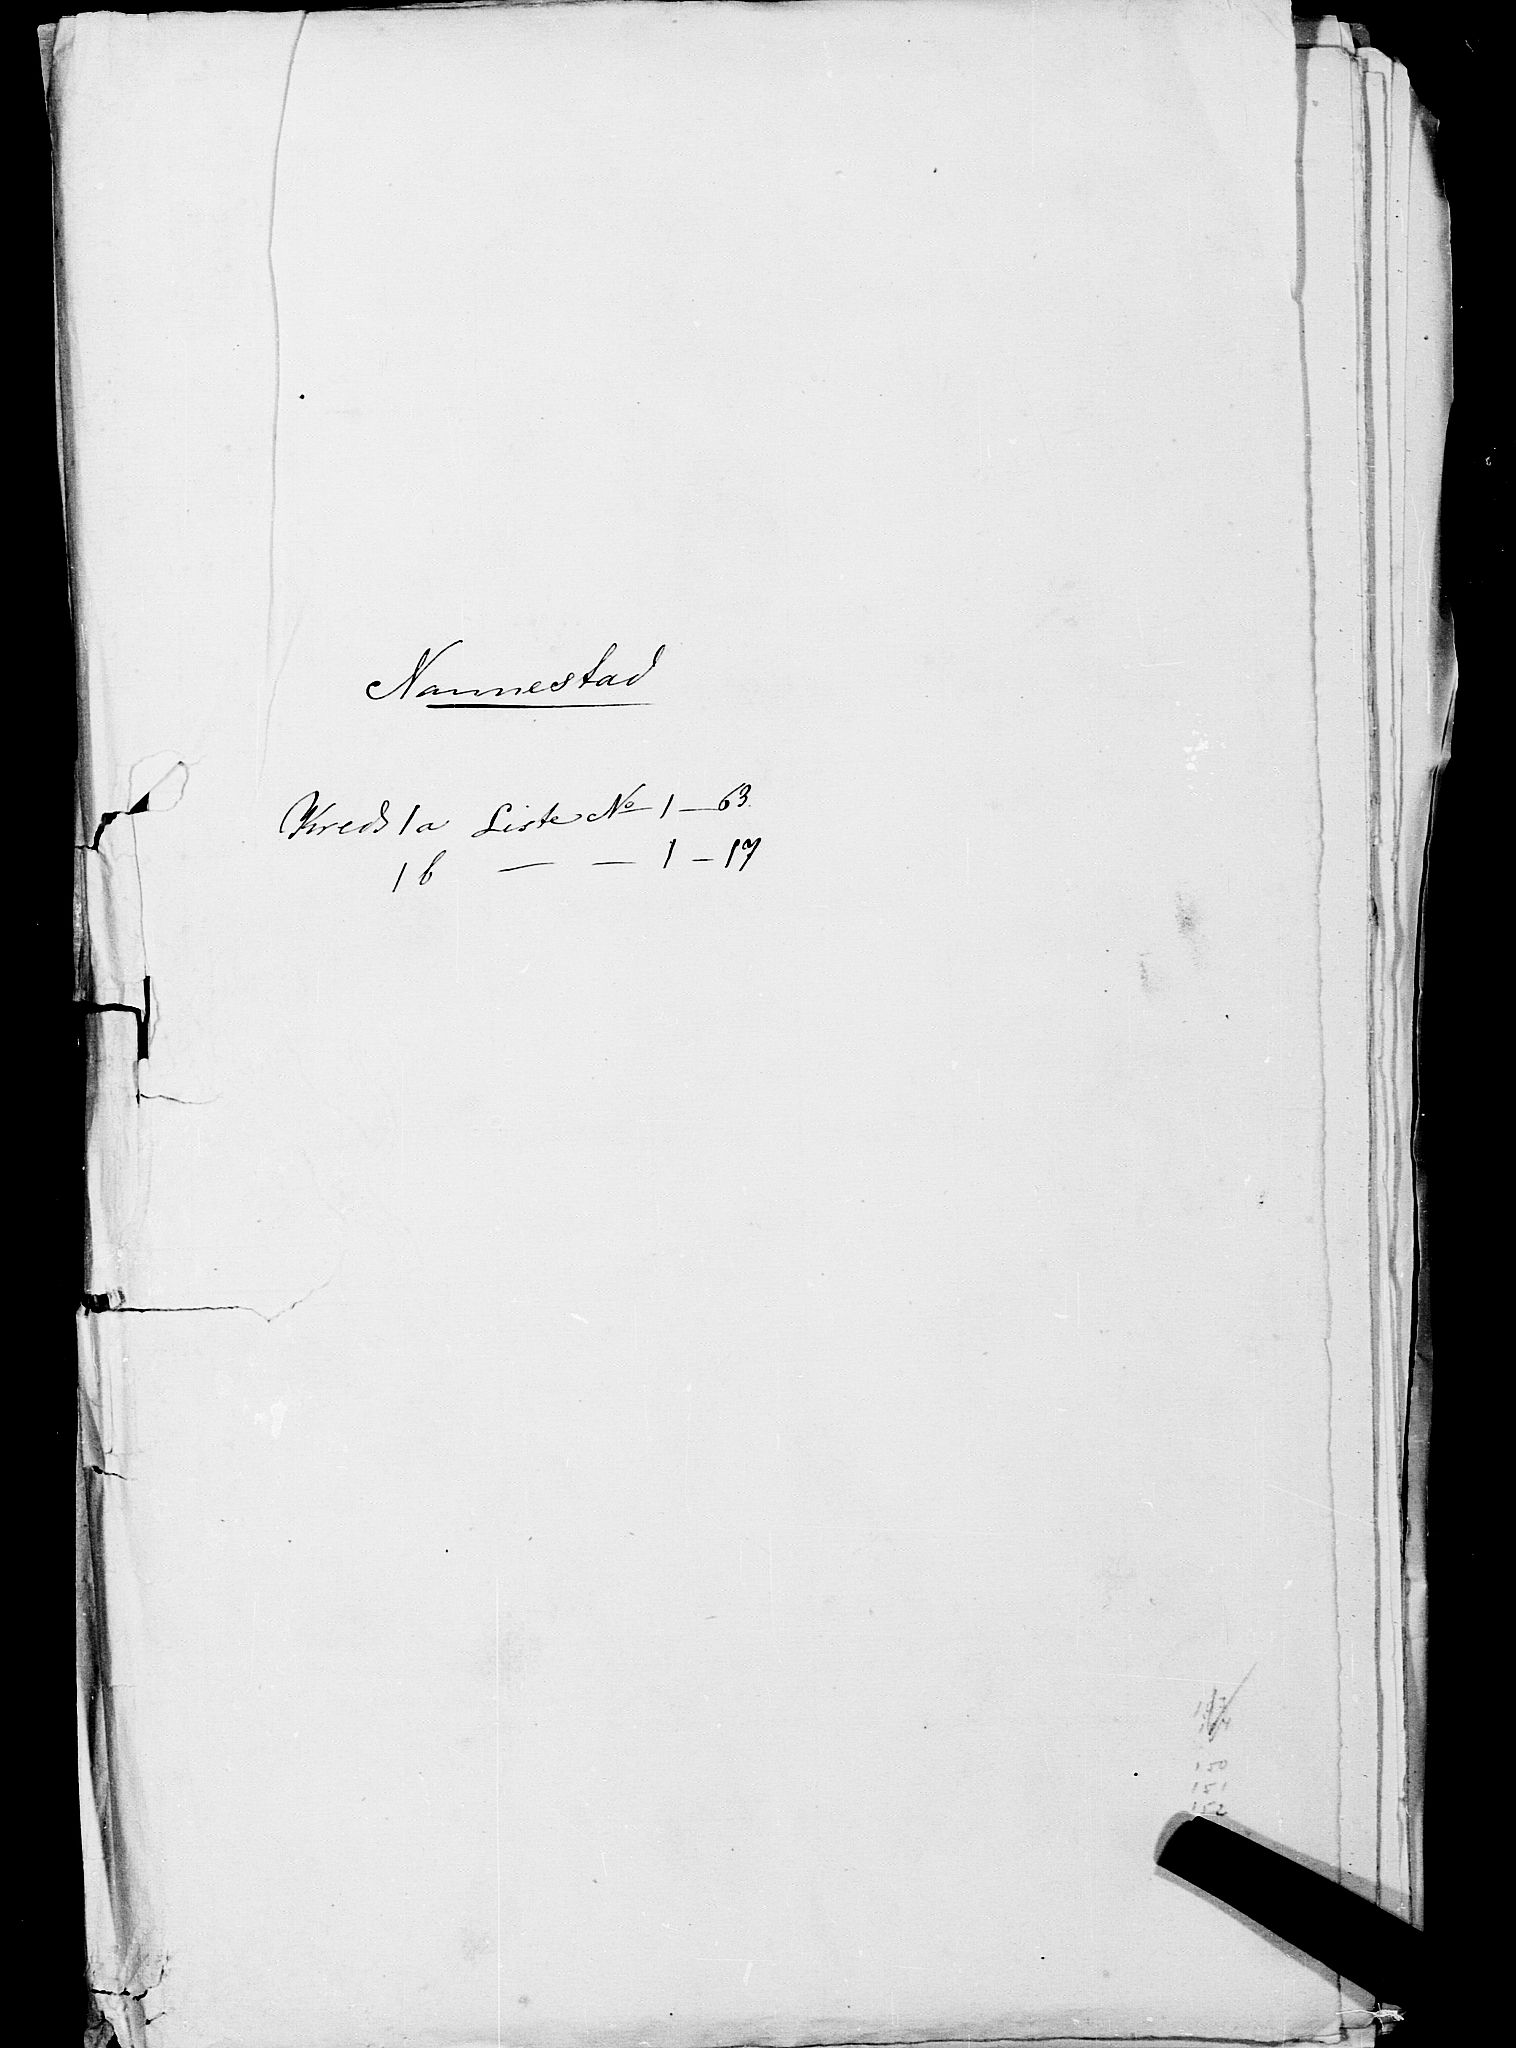 Nannestad
Kreds 1a Liste No 1 — 63.
1 b — — 1 — 17
120
121
122